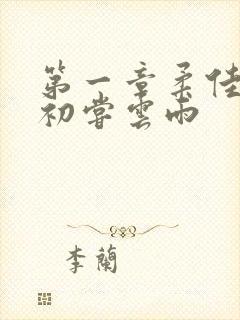 第一章柔佳
初嘗雲雨
李蘭